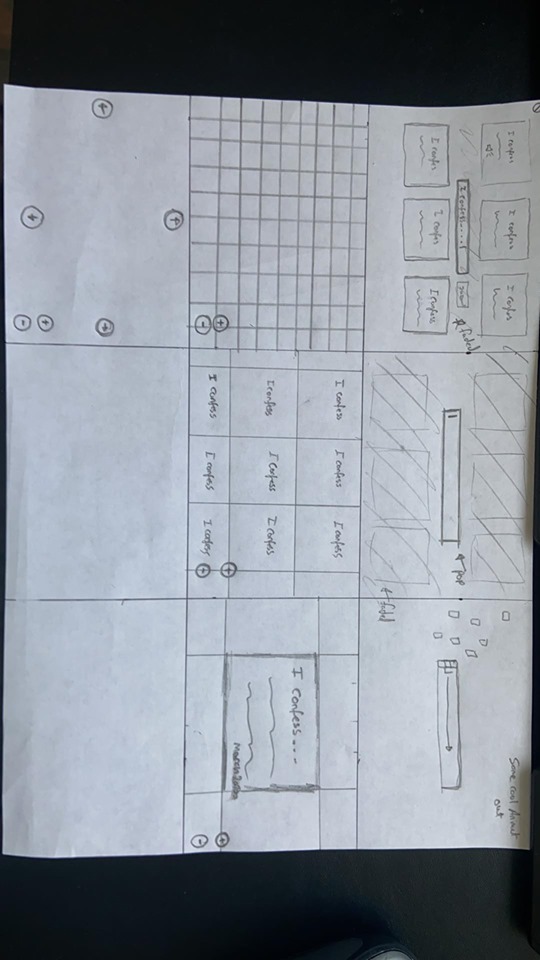 I confess
I confess
I confes
I confess....
faded
I confes
I confes
I confess
pop
faded
Some cool
out
I confess
I confess
I confess
I confess
I confess
I confess
I confess
I confess
I confess
+
-
+
-
I confess...
+
-
+
-